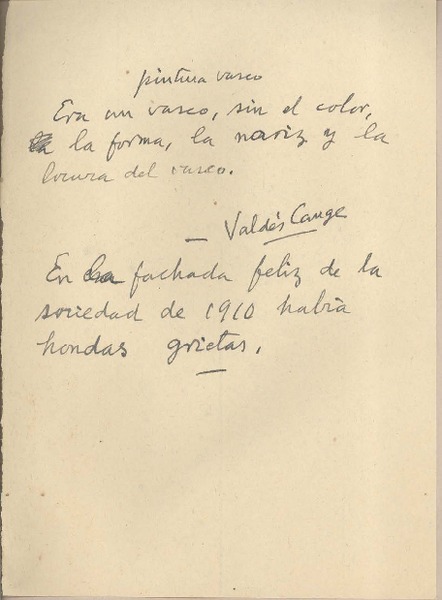 pintura vasco
Era un vasco, sin el color,
la forma, la nariz y la
locura del vasco.
Valdés Cange
En la fachada feliz de la
sociedad de 1910 había
hondas grietas.